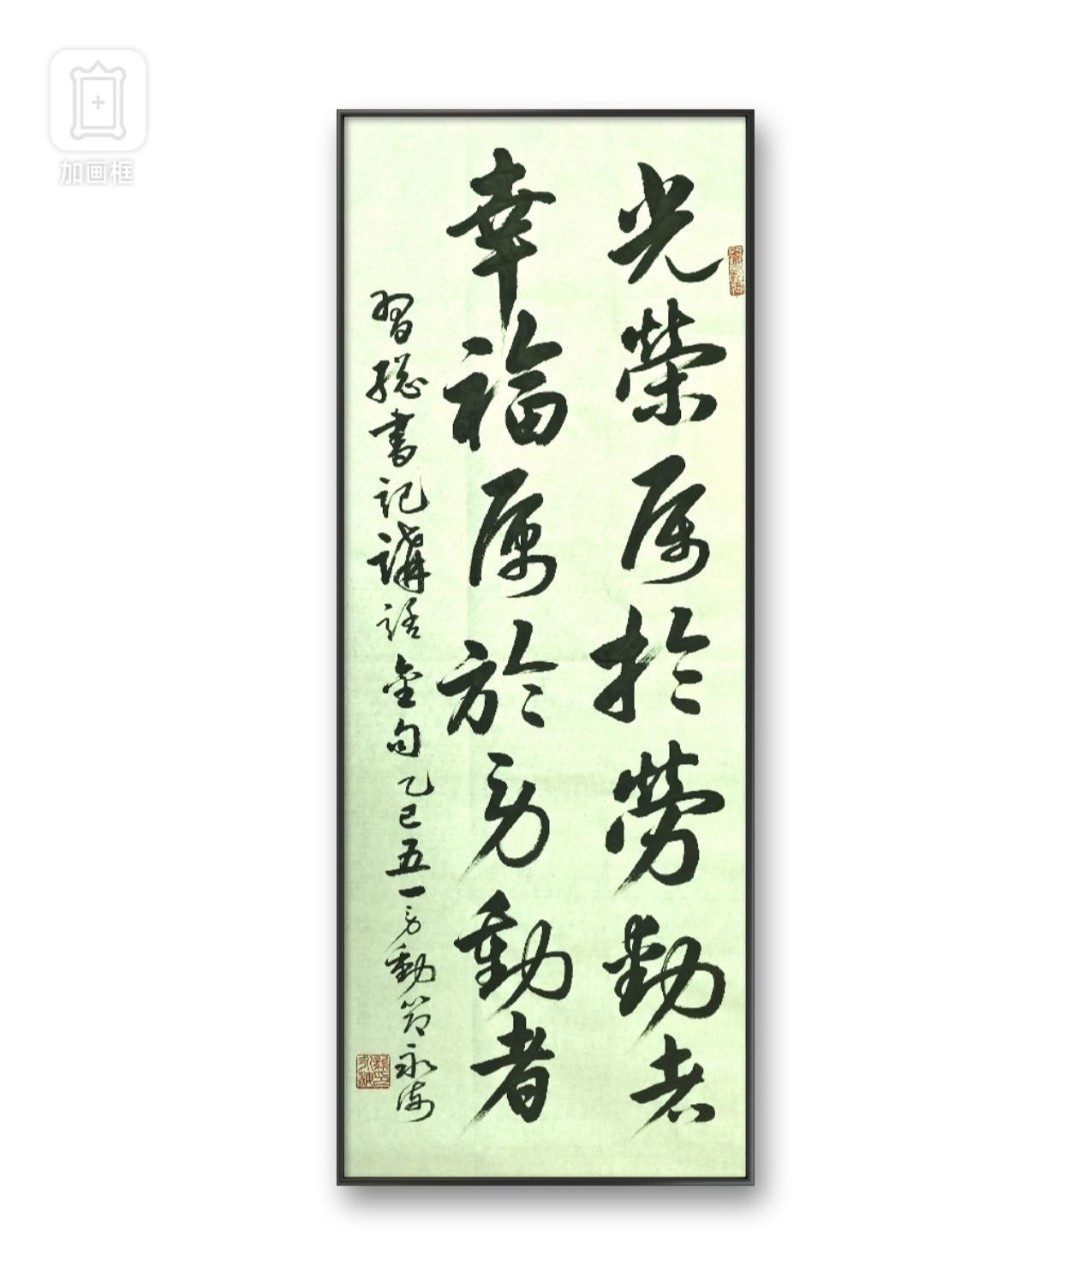 加画框
光榮属於勞動者
幸福属於劳動者
習總書記講話金句乙巳五一劳動節永海